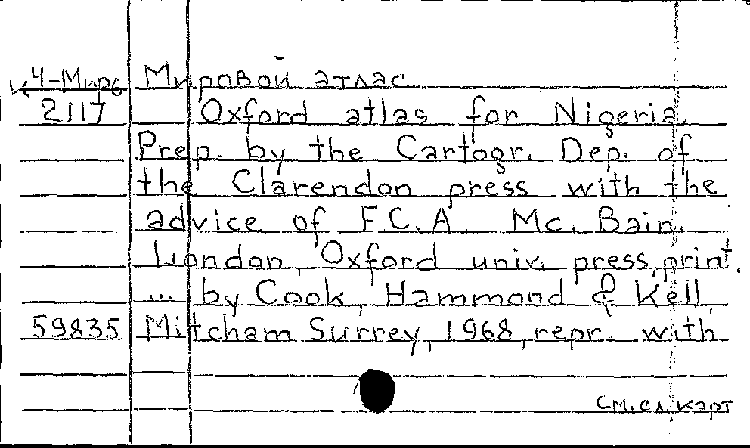 К 4-Миро Мировой атлас
2117 Oxford atlas for Nigeria.
Prep. by the Cartogr. Dep. of
the Clarendon press with the
advice of F.C.A Mc. Bain.
London, Oxford univ. press, print.
... by Cook, Hammond & Kell
59835 Mitcham Surrey, 1968, repr. with
см. сл. карт